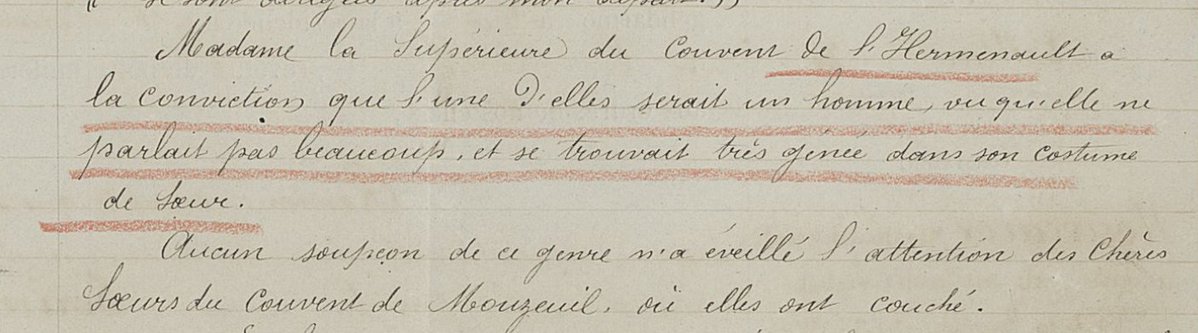 se sont dirigées après mon départ. »
Madame la Supérieure du Couvent de l'Hermenault a
la conviction que l'une d'elles serait un homme, vu qu'elle ne
parlait pas beaucoup, et se trouvait très génée dans son costume
de Sœur.
Aucun soupçon de ce genre n'a éveillé l'attention des Chères
Sœurs du Couvent de Mouzeuil, où elles ont couché.